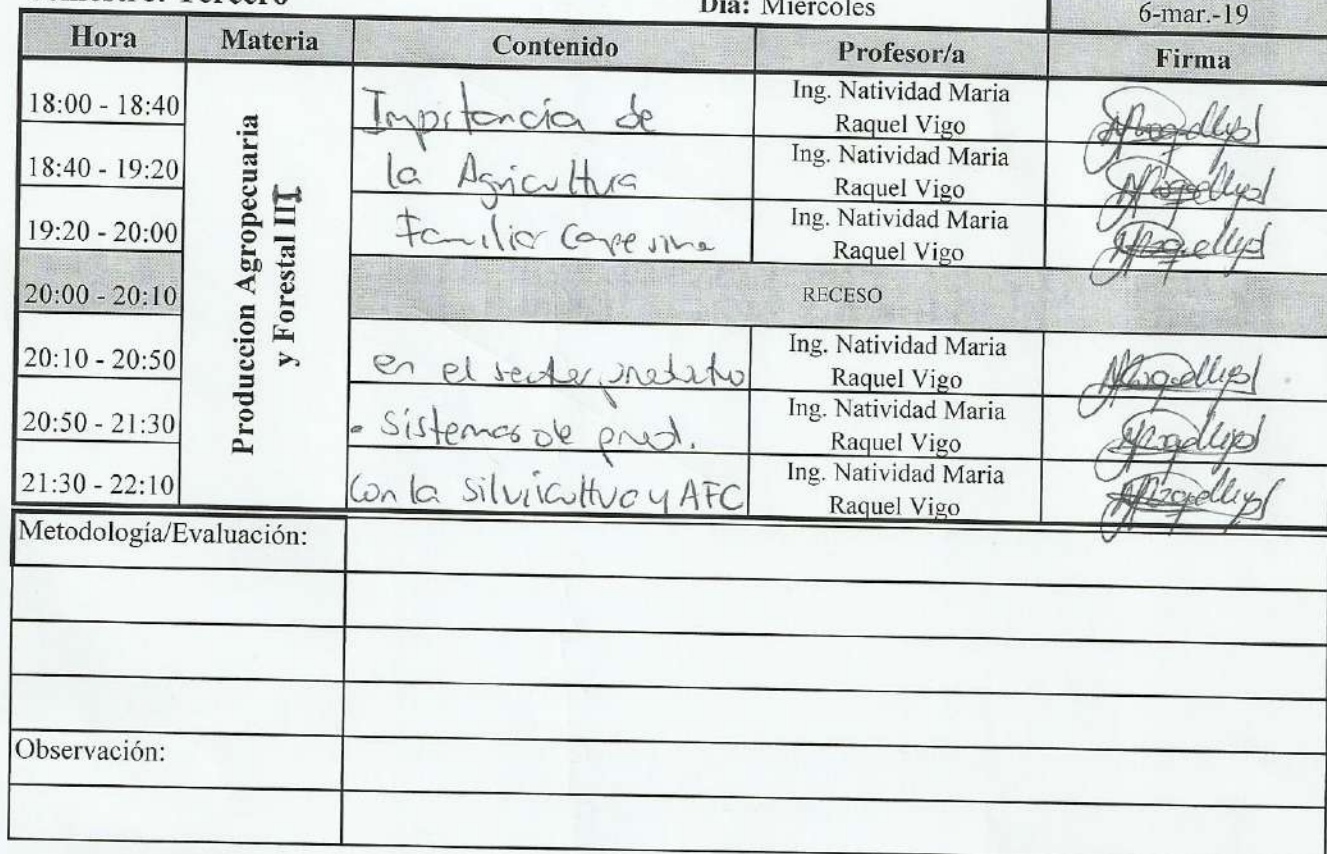 Tercero
Día: Miércoles
6-mar.-19
Hora Materia Contenido Profesor/a Firma
Produccion Agropecuaria
y Forestal III
18:00 - 18:40 Importancia de Ing. Natividad Maria
Raquel Vigo
18:40 - 19:20 la Agricultura Ing. Natividad Maria
Raquel Vigo
19:20 - 20:00 Familiar Campesina Ing. Natividad Maria
Raquel Vigo
20:00 - 20:10 RECESO
20:10 - 20:50 en el sector Ing. Natividad Maria
Raquel Vigo
20:50 - 21:30 • Sistemas de prod. Ing. Natividad Maria
Raquel Vigo
21:30 - 22:10 Con la silvicultura y AFC Ing. Natividad Maria
Raquel Vigo
Metodología/Evaluación:
Observación: